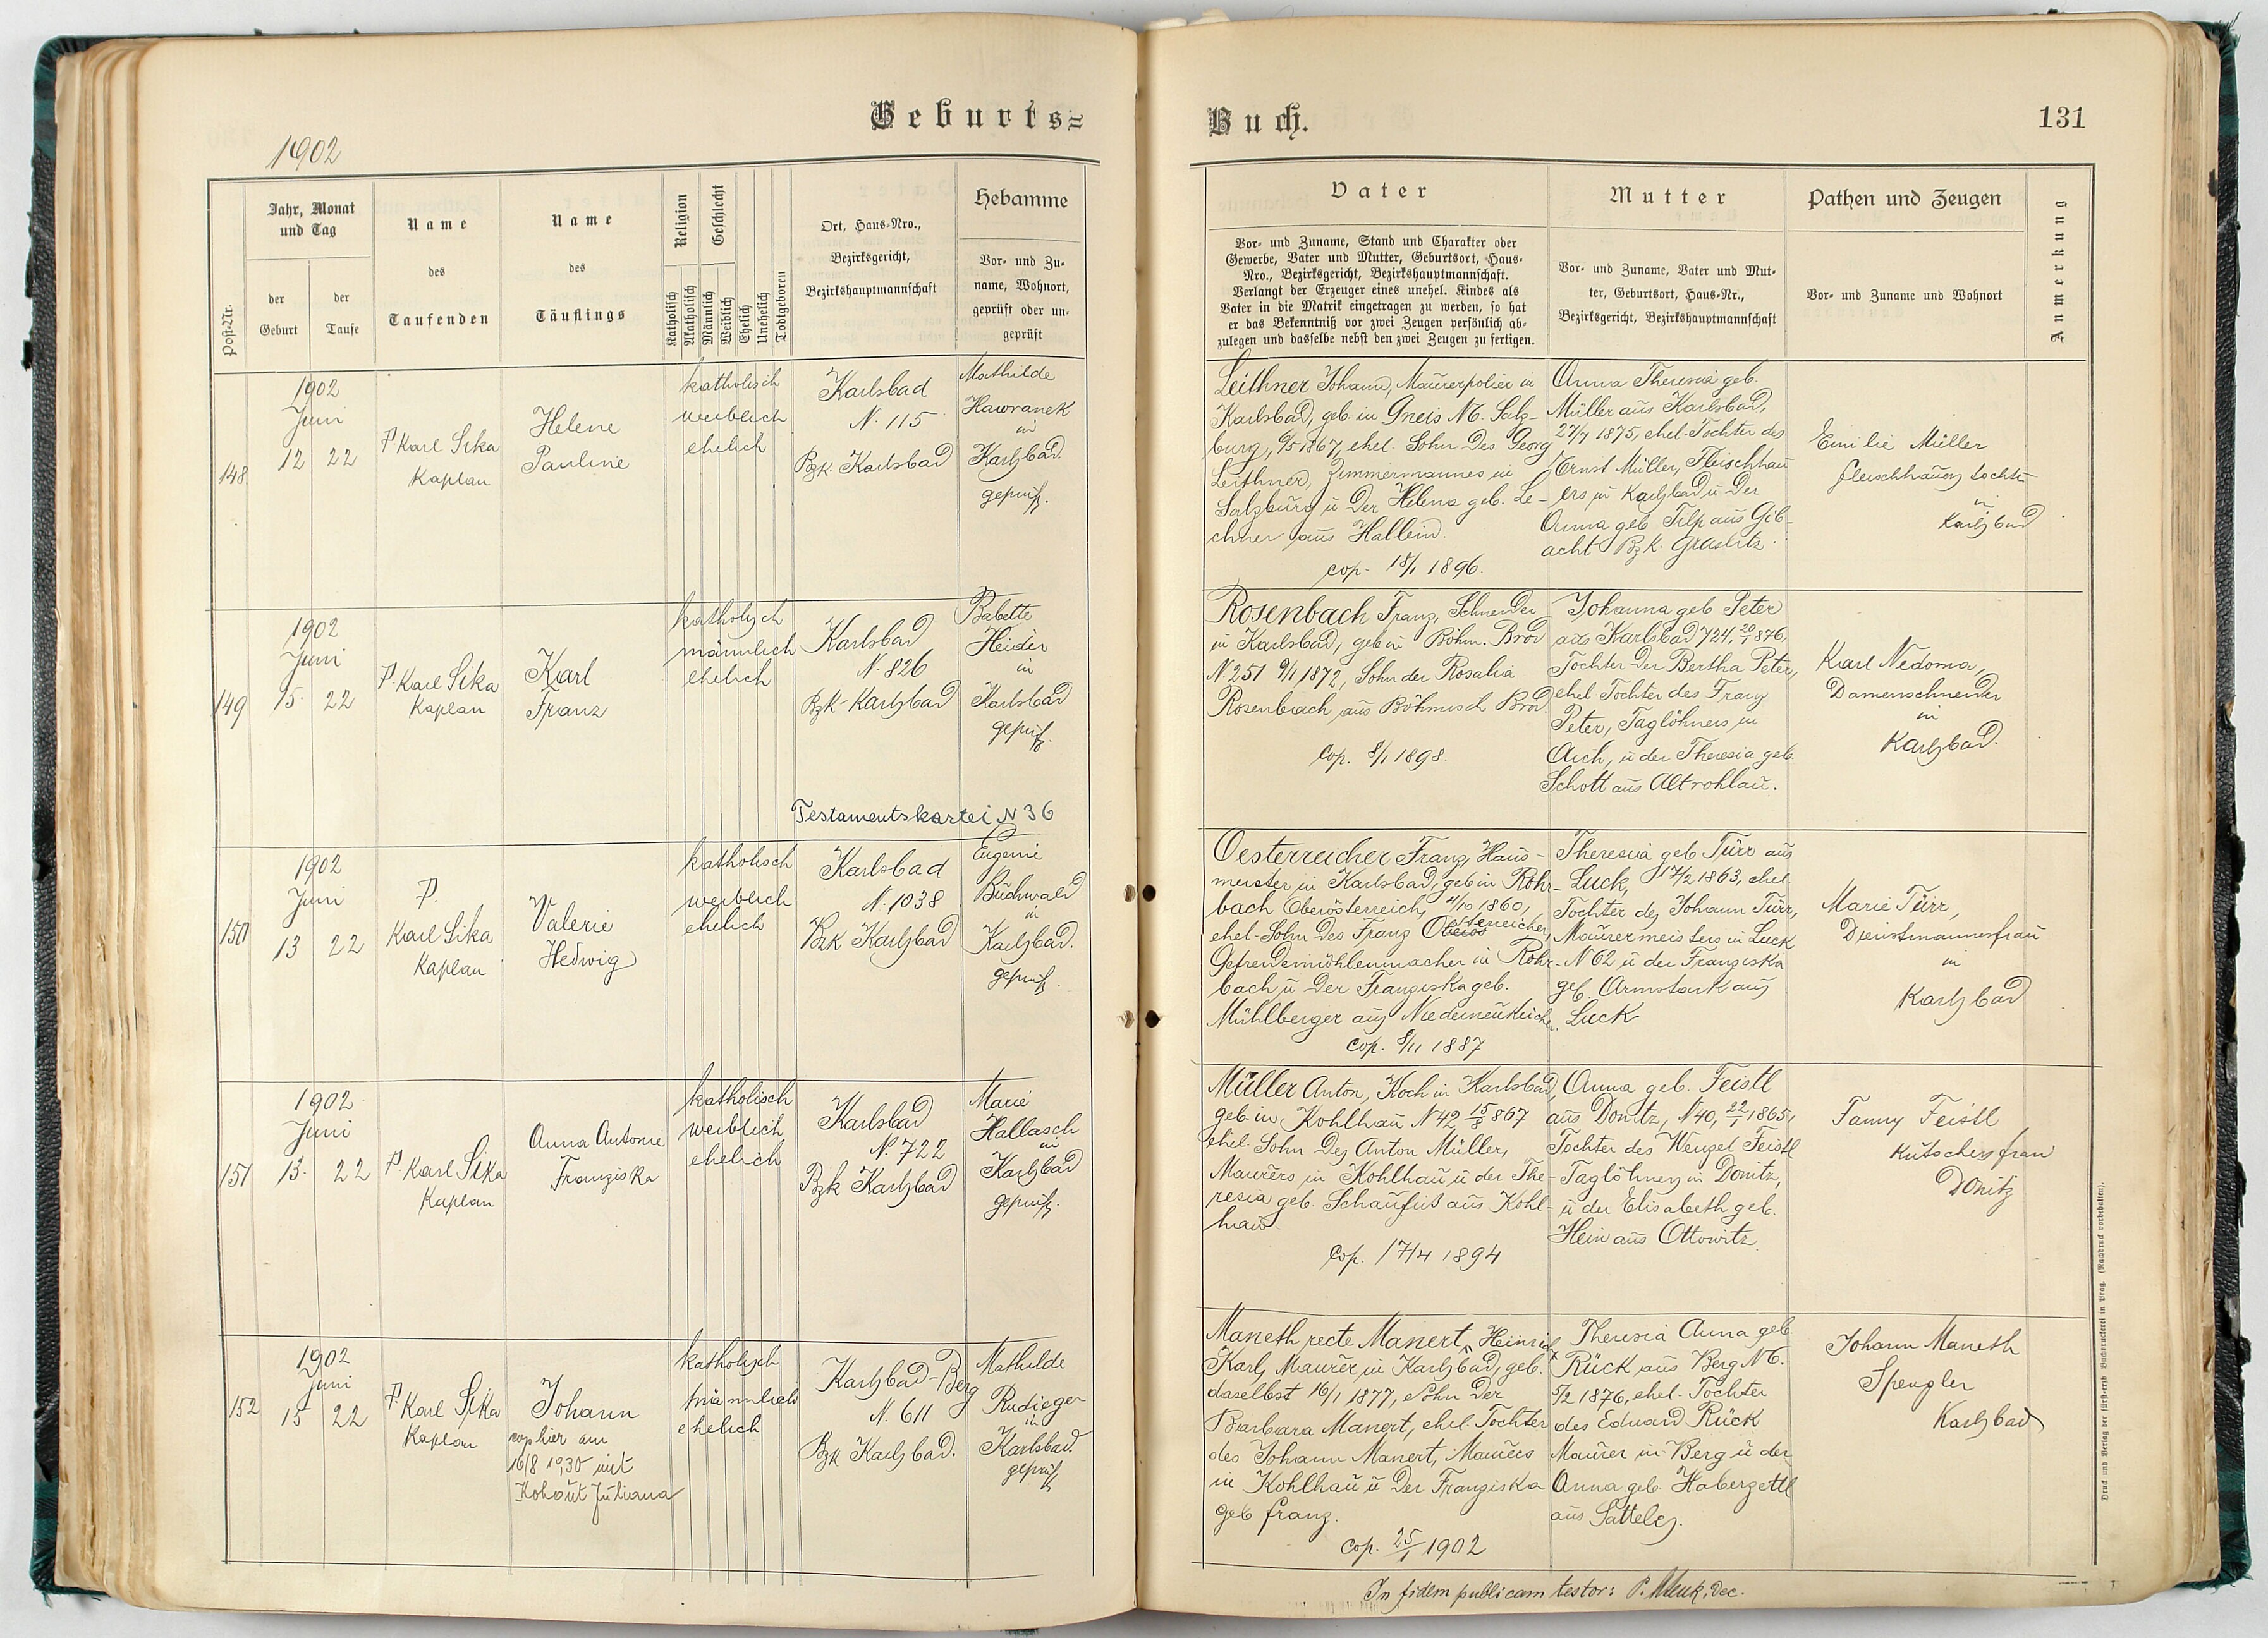 Geburts=
1902
Post-Nr.
Jahr, Monat
und Tag
der
Geburt
der
Taufe
Name
des
Taufenden
Name
des
Täuflings
Religion
Geschlecht
Katholisch
Akatholisch
Männlich
Weiblich
Ehelich
Unehelich
Todtgeboren
Ort, Haus-Nro.,
Bezirksgericht,
Bezirkshauptmannschaft
Hebamme
Vor- und Zu-
name, Wohnort,
geprüft oder un-
geprüft
148
1902
Juni
12 22
P Karl Sika
Kaplan
Helene
Pauline
katholisch
weiblich
ehelich
Karlsbad
N. 115
Bzk. Karlsbad
Mathilde
Hawranek
in
Karlsbad.
geprüft.
149
1902
Juni
15. 22
P. Karl Sika
Kaplan
Karl
Franz
katholisch
männlich
ehelich
Karlsbad
N. 826
Bzk-Karlsbad
Babette
Heider
in
Karlsbad
geprüft.
Testamentskartei N 36
150
1902
Juni
13 22
P.
Karl Sika
Kaplan
Valerie
Hedwig
katholisch
weiblich
ehelich
Karlsbad
N. 1038
Bzk Karlsbad
Eugenie
Buchwald
in
Karlsbad.
geprüft.
151
1902
Juni
13. 22
P. Karl Sika
Kaplan
Anna Antonie
Franziska
katholisch
weiblich
ehelich
Karlsbad
N. 722
Bzk Karlsbad
Marie
Hallasch
in
Karlsbad
geprüft.
152
1902
Juni
15 22
P. Karl Sika
Kaplan
Johann
cop hier am
16/8 1930 mit
Kohout Juliana
katholisch
männlich
ehelich
Karlsbad-Berg
N. 611
Bzk Karlsbad.
Mathilde
Rudieger
in
Karlsbad.
geprüft
Buch.
131
Vater
Vor- und Zuname, Stand und Charakter oder
Gewerbe, Vater und Mutter, Geburtsort, Haus-
Nro., Bezirksgericht, Bezirkshauptmannschaft.
Verlangt der Erzeuger eines unehel. Kindes als
Vater in die Matrik eingetragen zu werden, so hat
er das Bekenntniß vor zwei Zeugen persönlich ab-
zulegen und dasselbe nebst den zwei Zeugen zu fertigen.
Mutter
Vor- und Zuname, Vater und Mut-
ter, Geburtsort, Haus-Nr.,
Bezirksgericht, Bezirkshauptmannschaft
Pathen und Zeugen
Vor- und Zuname und Wohnort
Anmerkung
Leithner Johann, Maurerpolier in
Karlsbad, geb. in Gneis N6. Salz-
burg, 9/5 1867, ehel. Sohn des Georg
Leithner, Zimmermannes in
Salzburg u der Helena geb. Le-
chner aus Hallein.
cop. 18/1 1896.
Anna Theresia geb.
Müller aus Karlsbad,
27/7 1875, ehel. Tochter des
Ernst Müller, Fleischhau
ers in Karlsbad u der
Anna geb Tilp aus Gib-
acht Bzk. Graslitz.
Emilie Müller
Fleischhauers tochter
in
Karlsbad
Rosenbach Franz, Schneider
in Karlsbad, geb in Böhm. Brod
N. 251 9/1 1872, Sohn der Rosalia
Rosenbach aus Böhmisch Brod.
Cop. 8/1 1898.
Johanna geb Peter
aus Karlsbad 724, 20/1 876,
Tochter der Bertha Peter,
ehel Tochter des Franz
Peter, Taglöhners in
Aich, u der Theresia geb.
Schott aus Altrohlau.
Karl Nedoma,
Damenschneider
in
Karlsbad.
Oesterreicher Franz, Haus-
meister in Karlsbad, geb in Rohr-
bach Oberösterreich, 4/10 1860,
ehel. Sohn des Franz Oesterreicher,
mühlenmacher in Rohr-
bach u der Franziska geb.
Mühlberger aus
cop. 8/11 1887
Theresia geb Türr aus
Luck, 17/2 1863, ehel.
Tochter des Johann Türr,
Maurermeisters in Luck
N 62 u der Franziska
geb. Armstark aus
Luck
Marie Türr,
Dienstmannesfrau
in
Karlsbad
Müller Anton, Koch in Karlsbad,
geb in Kohlhau N 42 15/8 867
ehel. Sohn des Anton Müller,
Maurers in Kohlhau u der The-
resia geb. Schaufuß aus Kohl-
hau.
Cop. 17/4 1894
Anna geb. Feistl
aus Donitz, N 40, 22/1 1865,
Tochter des Wenzel Feistl
Taglöhners in Donitz,
u der Elisabeth geb.
Hein aus Ottowitz.
Fanny Feistl
Kutschersfrau
Donitz
Maneth recte Manert, Heinrich
Karl, Maurer in Karlsbad, geb.
daselbst 16/1 1877, Sohn der
Barbara Manert, ehel. Tochter
des Johann Manert, Maurers
in Kohlhau u der Franziska
geb Franz.
cop. 25/1 1902
Theresia Anna geb
Rück aus Berg N 6.
5/2 1876, ehel. Tochter
des Eduard Rück
Maurer in Berg u der
Anna geb. Haberzettl
aus Sattelez.
Johann Maneth
Spengler
Karlsbad
In fidem publicam testor: P. Dec.
Druck und Verlag der fürst-erzb Buchdruckerei in Prag. (Nachdruck vorbehalten).